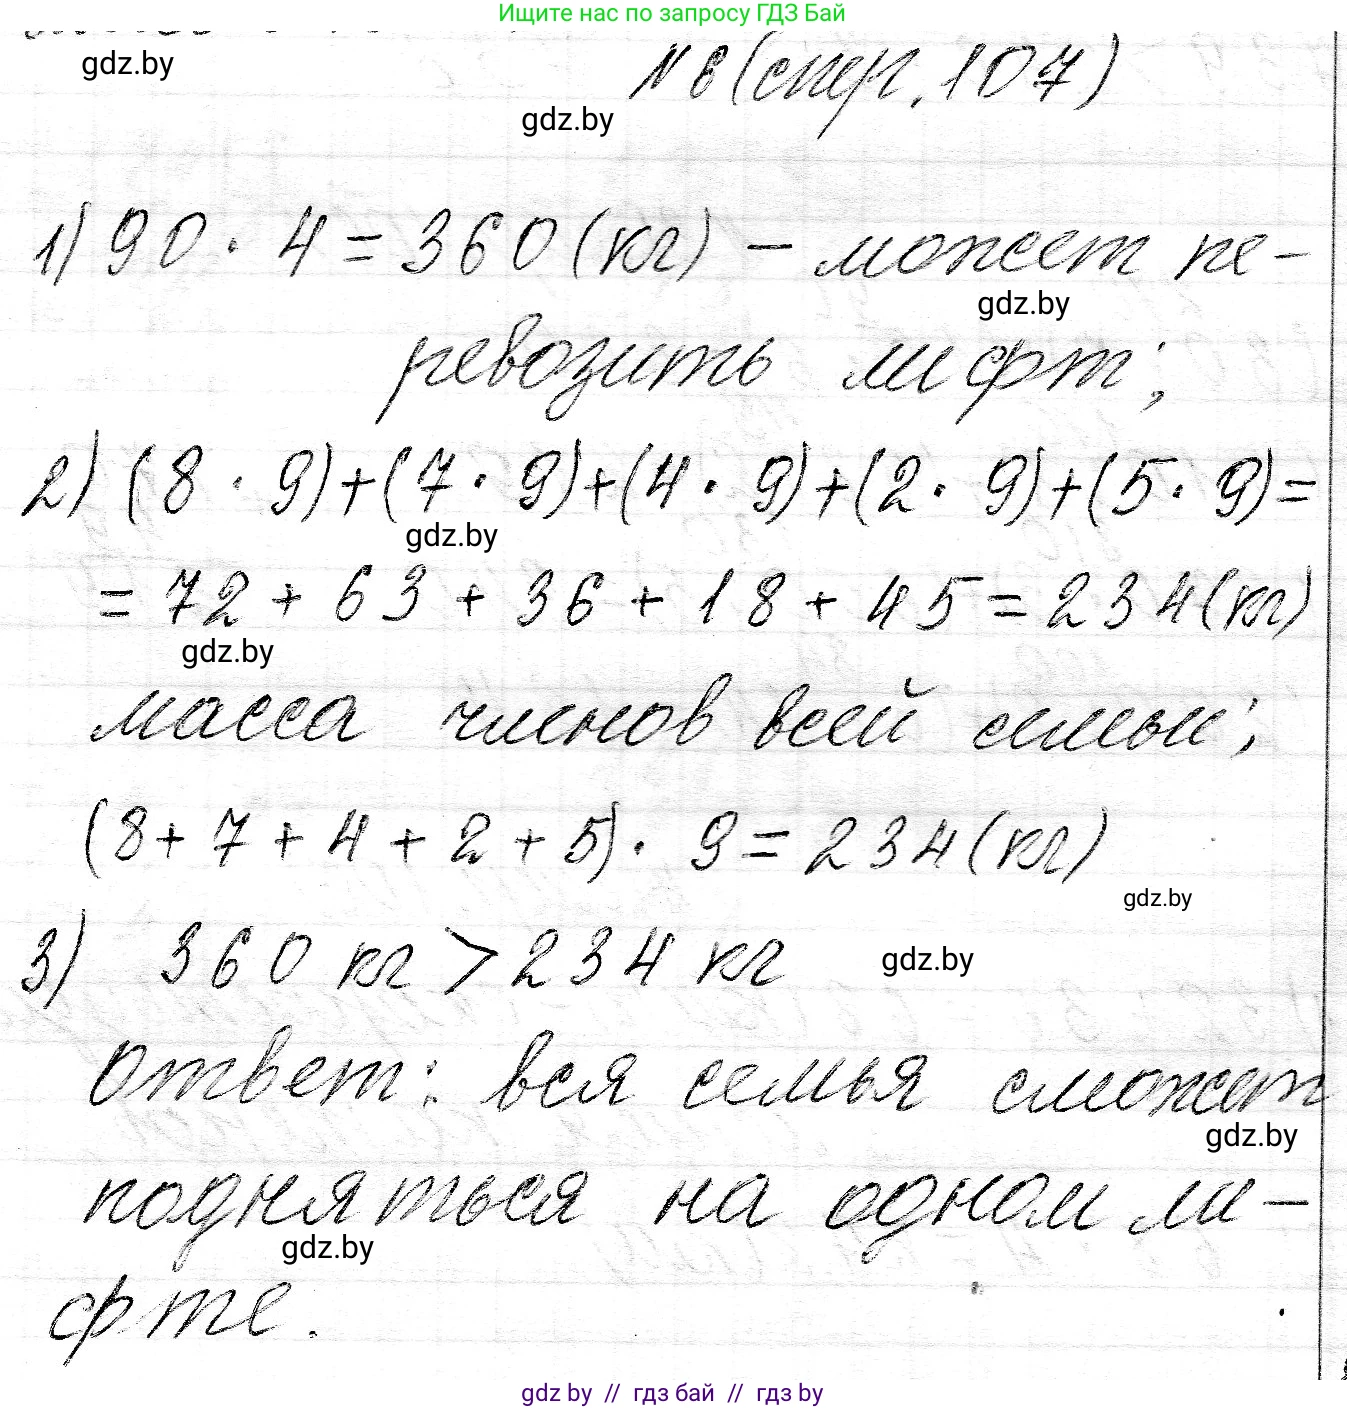 Ищите нас по запросу ГДЗ Бай
gdz.by
№ 8 (стр. 107)
gdz.by
1) 90 · 4 = 360 (кг) – может пе-
gdz.by
ревозить лифт;
2) (8 · 9)+(7 · 9)+(4 · 9)+(2 · 9)+(5 · 9)=
gdz.by
= 72 + 63 + 36 + 18 + 45 = 234 (кг)
gdz.by
масса членов всей семьи;
(8+ 7 + 4 + 2 + 5) · 9 = 234 (кг)
gdz.by
3) 360 кг > 234 кг
gdz.by
Ответ: вся семья сможет
gdz.by
подняться на одном ли-
gdz.by
фте.
gdz by // гдз бай // гдз by